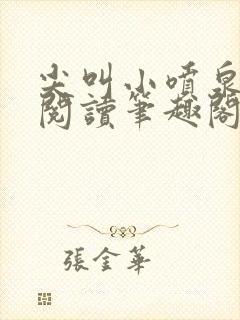 尖叫小噴泉
閱讀筆趣閣
張金華